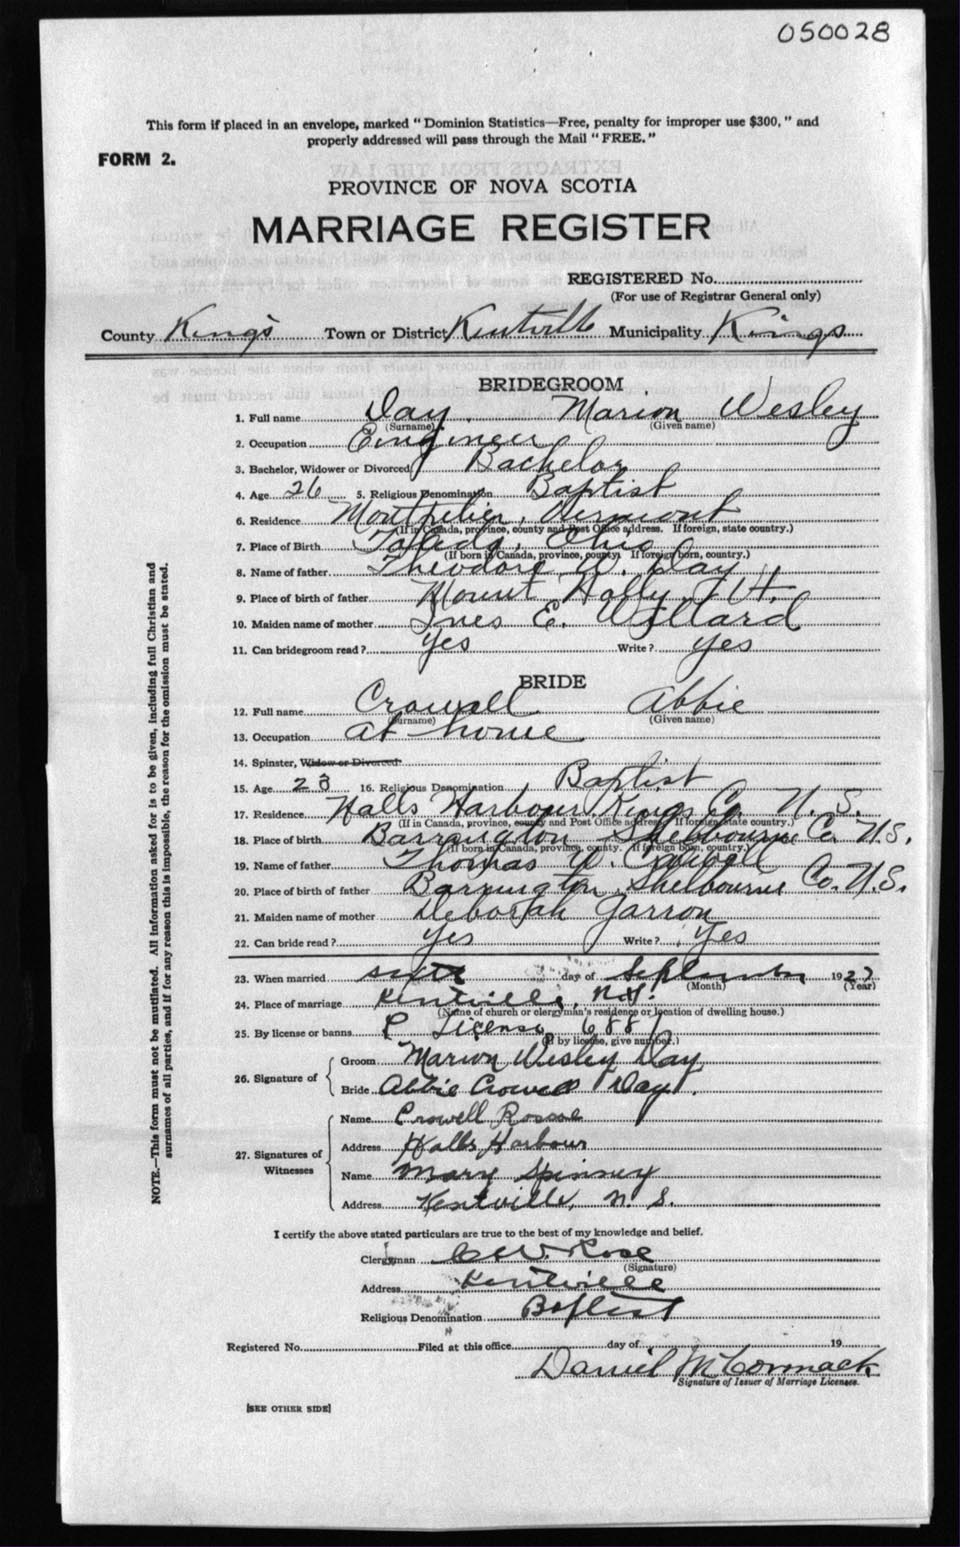 050028
This form if placed in an envelope, marked " Dominion Statistics—Free, penalty for improper use $300, " and
properly addressed will pass through the Mail " FREE. "
FORM 2.
PROVINCE OF NOVA SCOTIA
MARRIAGE REGISTER
REGISTERED No.
(For use of Registrar General only)
County King's Town or District Kentville Municipality Kings
BRIDEGROOM
1. Full name Day Marion Wesley
(Surname) (Given name)
2. Occupation Engineer
3. Bachelor, Widower or Divorced Bachelor
4. Age 26 5. Religious Denomination Baptist
6. Residence Montpelier, Vermont
(If in Canada, province, county and Post Office address. If foreign, state country.)
7. Place of Birth Toledo, Ohio
(If born in Canada, province, county. If foreign born, country.)
8. Name of father Theodore W. Day
9. Place of birth of father Mount Holly,
10. Maiden name of mother Ines E. Willard
11. Can bridegroom read? yes Write? yes
BRIDE
12. Full name Crowell Abbie
(Surname) (Given name)
13. Occupation at home
14. Spinster, Widow or Divorced
15. Age 23 16. Religious Denomination Baptist
17. Residence Halls Harbour Kings Co. N. S.
(If in Canada, province, county and Post Office address. If foreign state country.)
18. Place of birth Barrington Shelbourne Co. N.S.
(If born in Canada, province, county. If foreign born, country.)
19. Name of father Thomas W. Crowell
20. Place of birth of father Barrington, Shelbourne Co. N.S.
21. Maiden name of mother Deborah
22. Can bride read? yes Write? Yes
23. When married sixth day of September 192
(Month) (Year)
24. Place of marriage Kentville, N.S.
(Name of church or clergyman's residence or location of dwelling house.)
25. By license or banns License
(If by license, give number.)
26. Signature of
Groom Marion Wesley Day
Bride Abbie Crowell Day
27. Signatures of Witnesses
Name Crowell Roscoe
Address Halls Harbour
Name Mary Spinney
Address Kentville, N. S.
I certify the above stated particulars are true to the best of my knowledge and belief.
Clergyman C W. Rose
(Signature)
Address Kentville
Religious Denomination Baptist
Registered No. Filed at this office day of 19
Daniel McCormack
Signature of Issuer of Marriage Licenses.
[SEE OTHER SIDE]
NOTE.—This form must not be mutilated. All information asked for is to be given, including full Christian and
surnames of all parties, and if for any reason this is impossible, the reason for the omission must be stated.